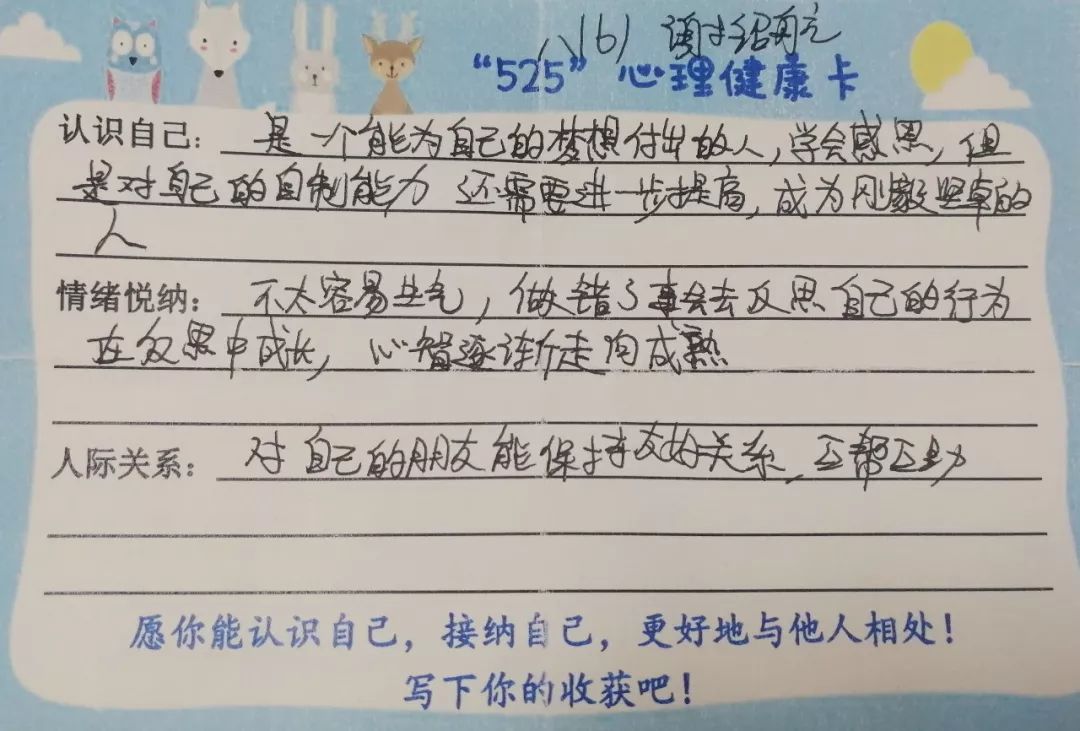 八(6) 谢绍航
“525”心理健康卡
认识自己：是一个能为自己的梦想付出的人,学会感恩,但
是对自己的自制能力还需要进一步提高,成为刚毅坚卓的
人
情绪悦纳：不太容易生气,做错了事会去反思自己的行为
在反思中成长,心智逐渐走向成熟
人际关系：对自己的朋友能保持友好关系、互帮互助
愿你能认识自己，接纳自己，更好地与他人相处！
写下你的收获吧！